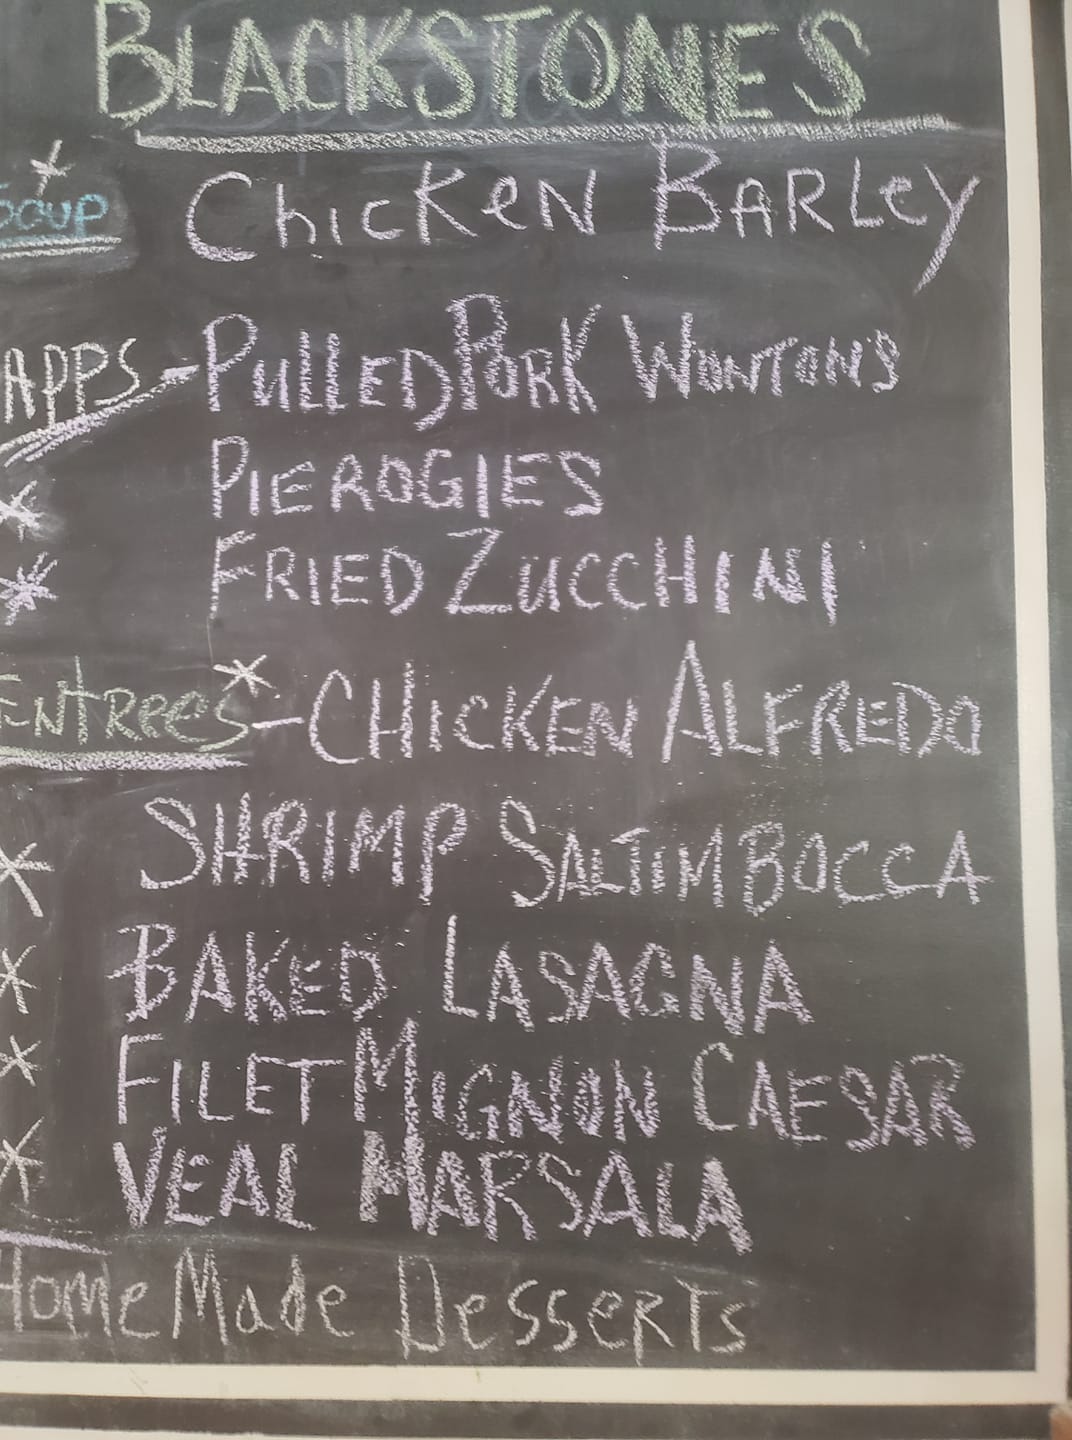 BLACKSTONES
Soup Chicken Barley
APPS - PULLED PORK WONTONS
PIEROGIES
FRIED ZUCCHINI
Entrees - CHICKEN ALFREDO
SHRIMP SALTIMBOCCA
BAKED LASAGNA
FILET MIGNON CAESAR
VEAL MARSALA
Home Made Desserts